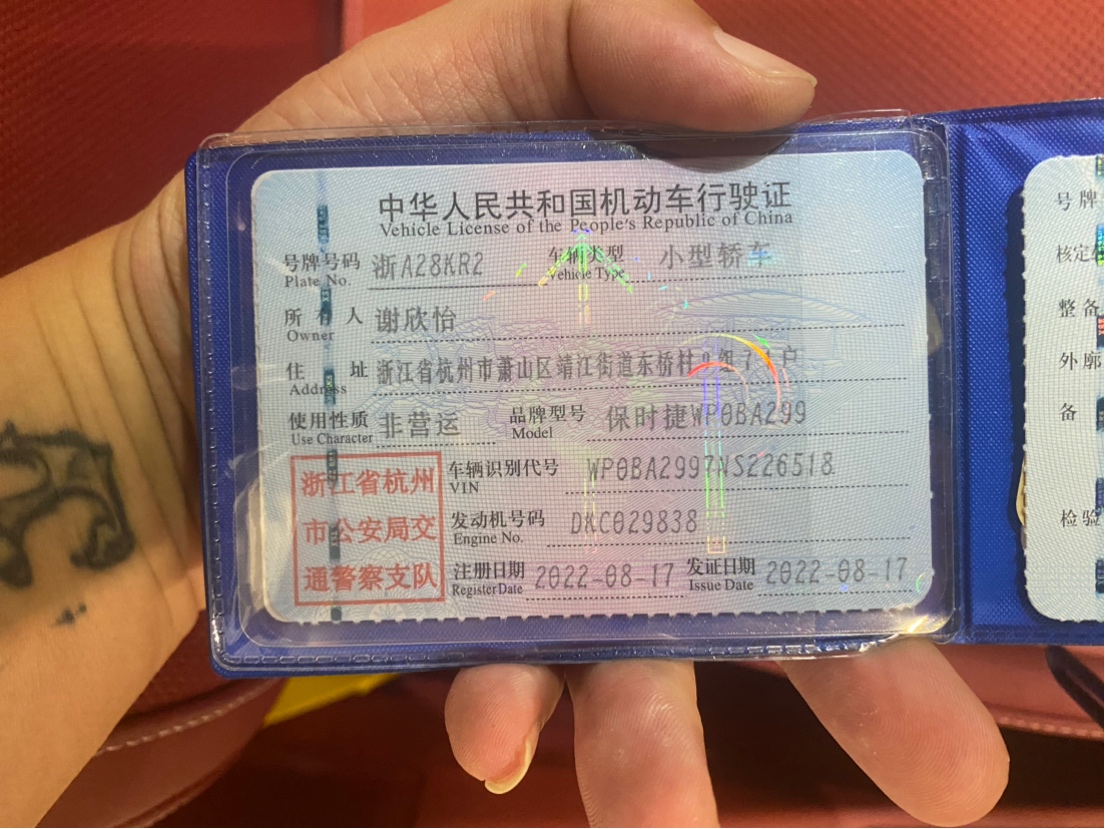 中华人民共和国机动车行驶证
Vehicle License of the People's Republic of China
号牌号码 浙A28KR2 车辆类型 小型轿车
Plate No. Vehicle Type
所有人 谢欣怡
Owner
住址 浙江省杭州市萧山区靖江街道东桥村 组 户
Address
使用性质 非营运 品牌型号 保时捷WP0BA299
Use Character Model
浙江省杭州
市公安局交
通警察支队
车辆识别代号 WP0BA2997NS226518
VIN
发动机号码 DKC029838
Engine No.
注册日期 2022-08-17 发证日期 2022-08-17
Register Date Issue Date
号牌
核定
整备
外廓
备
检验